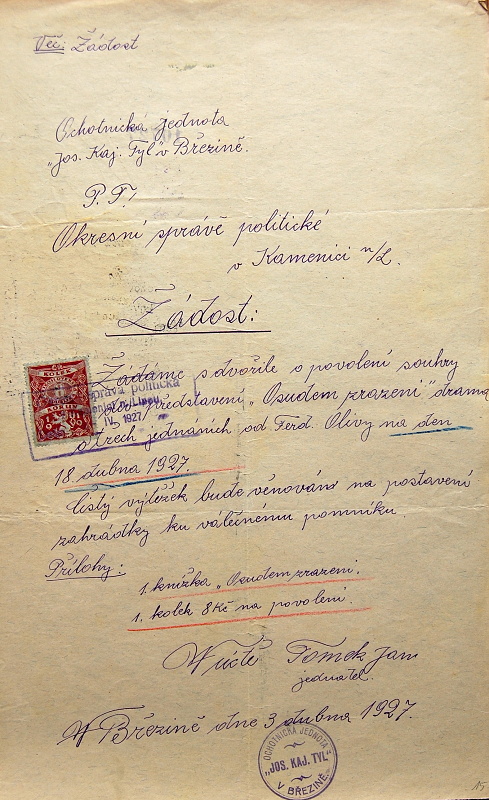 Věc: Žádost
Ochotnická jednota
"Jos. Kaj. Tyl" v Březině.
P. T.
Okresní správě politické
v Kamenici n/L.
Žádost:
Žádáme zdvořile o povolení souhry
představení "Osudem zrazeni" drama
o třech jednáních od Ferd. Olivy na den
18. dubna 1927.
Čistý výtěžek bude věnován na postavení
zahrádky ku válečnému pomníku
Přílohy:
1. knížka "Osudem zrazeni".
1. kolek 8 Kč na povolení.
V úctě Tomek Jan
jednatel.
V Březině dne 3 dubna 1927.
KOLEK
správa politická
n/Lipou
IV. 1927
OCHOTNICKÁ JEDNOTA
"JOS. KAJ. TYL"
V BŘEZINĚ